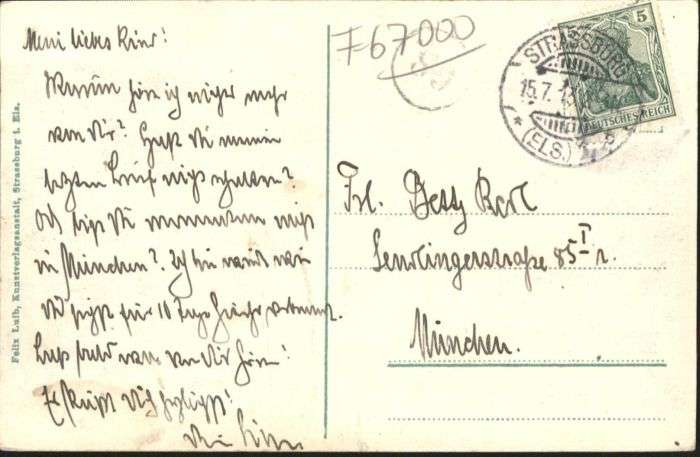 Mein liebes Kind!
Warum hör ich nichts mehr
von Dir? Hast Du meinen
letzten Brief nicht erhalten?
Od bist Du momentan nicht
in München? Ich bin
für 10 Tage
Laß bald von Dir hören!
Es küßt Dich
Dein
Felix Luib, Kunstverlagsanstalt, Strassburg i. Els.
F67000
STRASSBURG
15.7.13
(ELS.)
5
DEUTSCHES REICH
Frl. Betty Kerl
Sendlingerstraße 85 I r.
München.